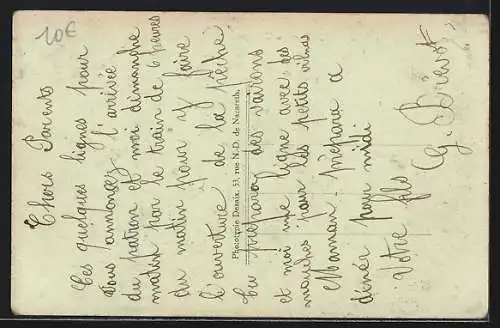 10€
Chers Parents
Ces quelques lignes pour
vous annoncer l'arrivée
du patron et moi dimanche
matin par le train de 6 heures
du matin pour y faire
l'ouverture de la pêche
Phototypie Desaix, 53, rue N.-D. de Nazareth.
tu prépara des vairons
et moi une ligne avec des
mouches pour les petits
Maman prépara a
diner pour midi
Votre fils